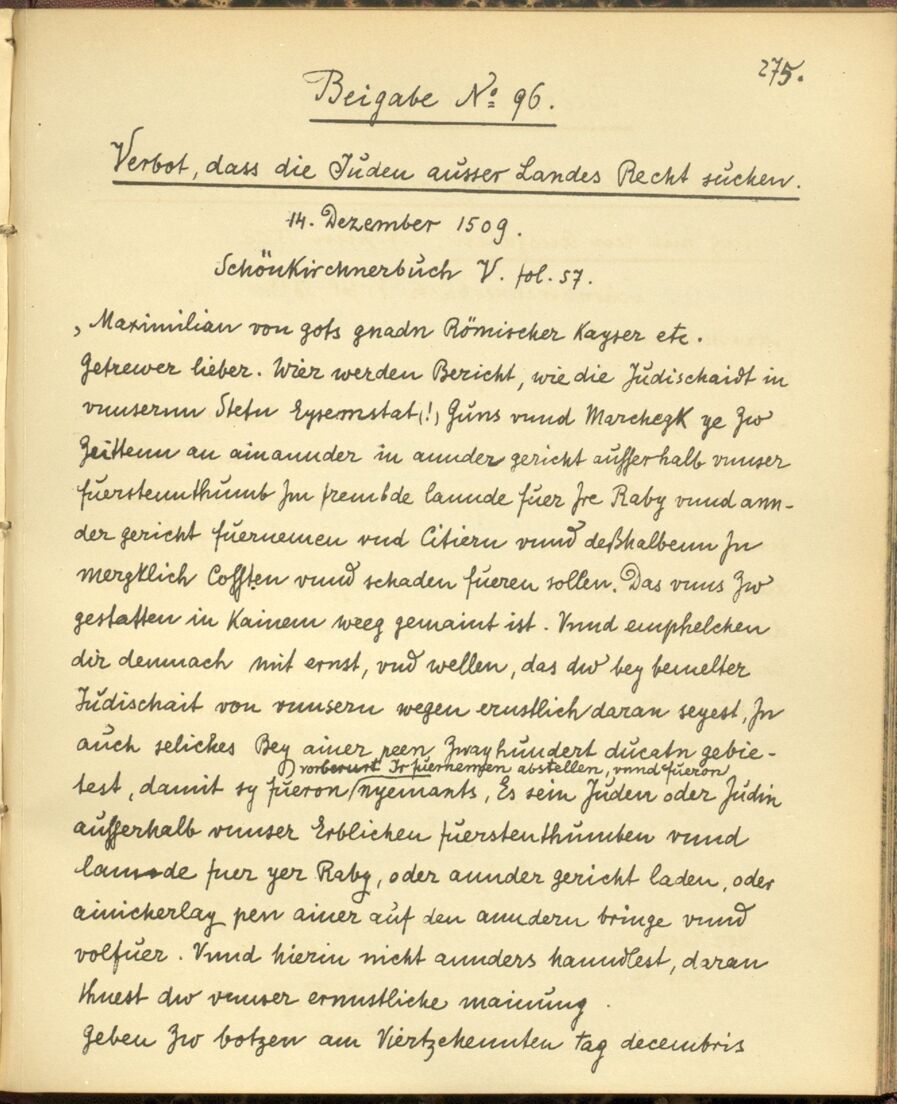 275.
Beigabe No 96.
Verbot, dass die Juden ausser Landes Recht suchen.
14. Dezember 1509.
Schönkirchnerbuch V. fol. 57.
„Maximilian von gots gnadn Römischer Kayser etc.
Getrewer lieber. Wier werden Bericht, wie die Judischaidt in
vnnsernn Stetn Eysemstat(!) Guns vnnd Marchegk ye Zw
Zeittenn an ainannder in annder gericht ausserhalb vnnser
fuerstennthumb Jm frembde lannde fuer Jre Raby vnnd ann-
der gericht fuernemen vnd Citiern vnnd deßhalbenn Jn
mergklich Cossten vnnd schaden fueren sollen. Das vnns Zw
gestatten in Kainem weeg gemaint ist. Vnnd emphelchen
dir demnach mit ernst, vnd wellen, das dw bey bemelter
Judischait von vnnsern wegen ernstlich daran seyest, Jn
auch seliches Bey ainer peen Zwayhundert ducatn gebie-
vorberurt Ir fuernemen abstellen, vnnd fueron
test, damit sy fueron nyemants, Es sein Juden oder Judin
ausserhalb vnnser Erblichen fuerstenthumben vnnd
lannde fuer yer Raby, oder annder gericht laden, oder
ainicherlay pen ainer auf den anndern bringe vnnd
volfuer. Vnnd hierin nicht annders hanndlest, daran
thuest dw vnnser ernnstliche mainung.
Geben Zw botzen am Viertzehennten tag decembris